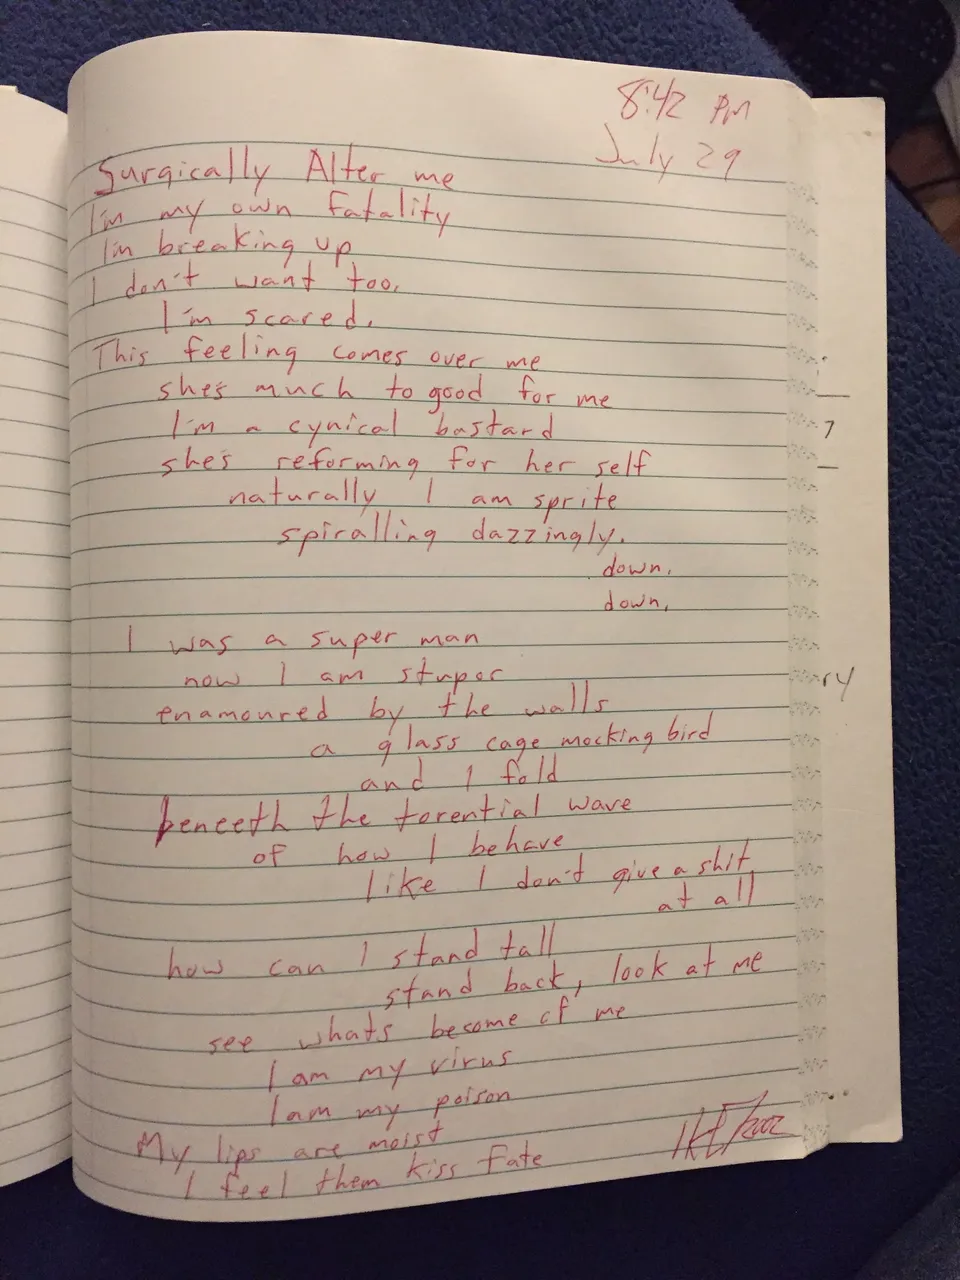 8:42 PM
July 29
Surgically Alter me
I'm my own fatality
I'm breaking up
I don't want too.
I'm scared.
This feeling comes over me
she's much to good for me
I'm a cynical bastard
she's reforming for her self
naturally I am sprite
spiralling dazzingly.
down.
down.
I was a super man
now I am stupor
enamoured by the walls
a glass cage mocking bird
and I fold
beneeth the torential wave
of how I behave
like I don't give a shit
at all
how can I stand tall
stand back, look at me
see whats become of me
I am my virus
I am my poison
My lips are moist
I feel them kiss fate
/2002
7
ry